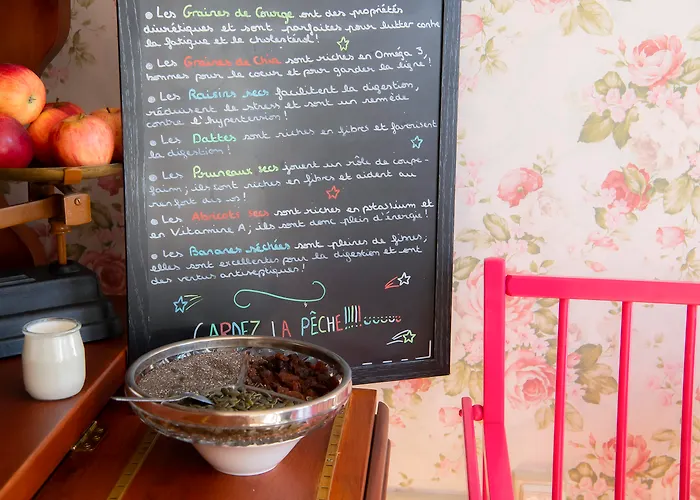 Les Graines de Courge ont des propriétés
diurétiques et sont parfaites pour lutter contre
la fatigue et le cholestérol !
Les Graines de Chia sont riches en Oméga 3,
bonnes pour le coeur et pour garder la ligne !
Les Raisins secs facilitent la digestion,
réduisent le stress et sont un remède
contre l'hypertension !
Les Dattes sont riches en fibres et favorisent
la digestion !
Les Pruneaux secs jouent un rôle de coupe-
faim ; ils sont riches en fibres et aident au
renfort des os !
Les Abricots secs sont riches en potassium et
en Vitamine A ; ils sont donc plein d'énergie !
Les Bananes séchées sont pleines de fibres ;
elles sont excellentes pour la digestion et ont
des vertus antiseptiques !
GARDEZ LA PÊCHE !!!!!